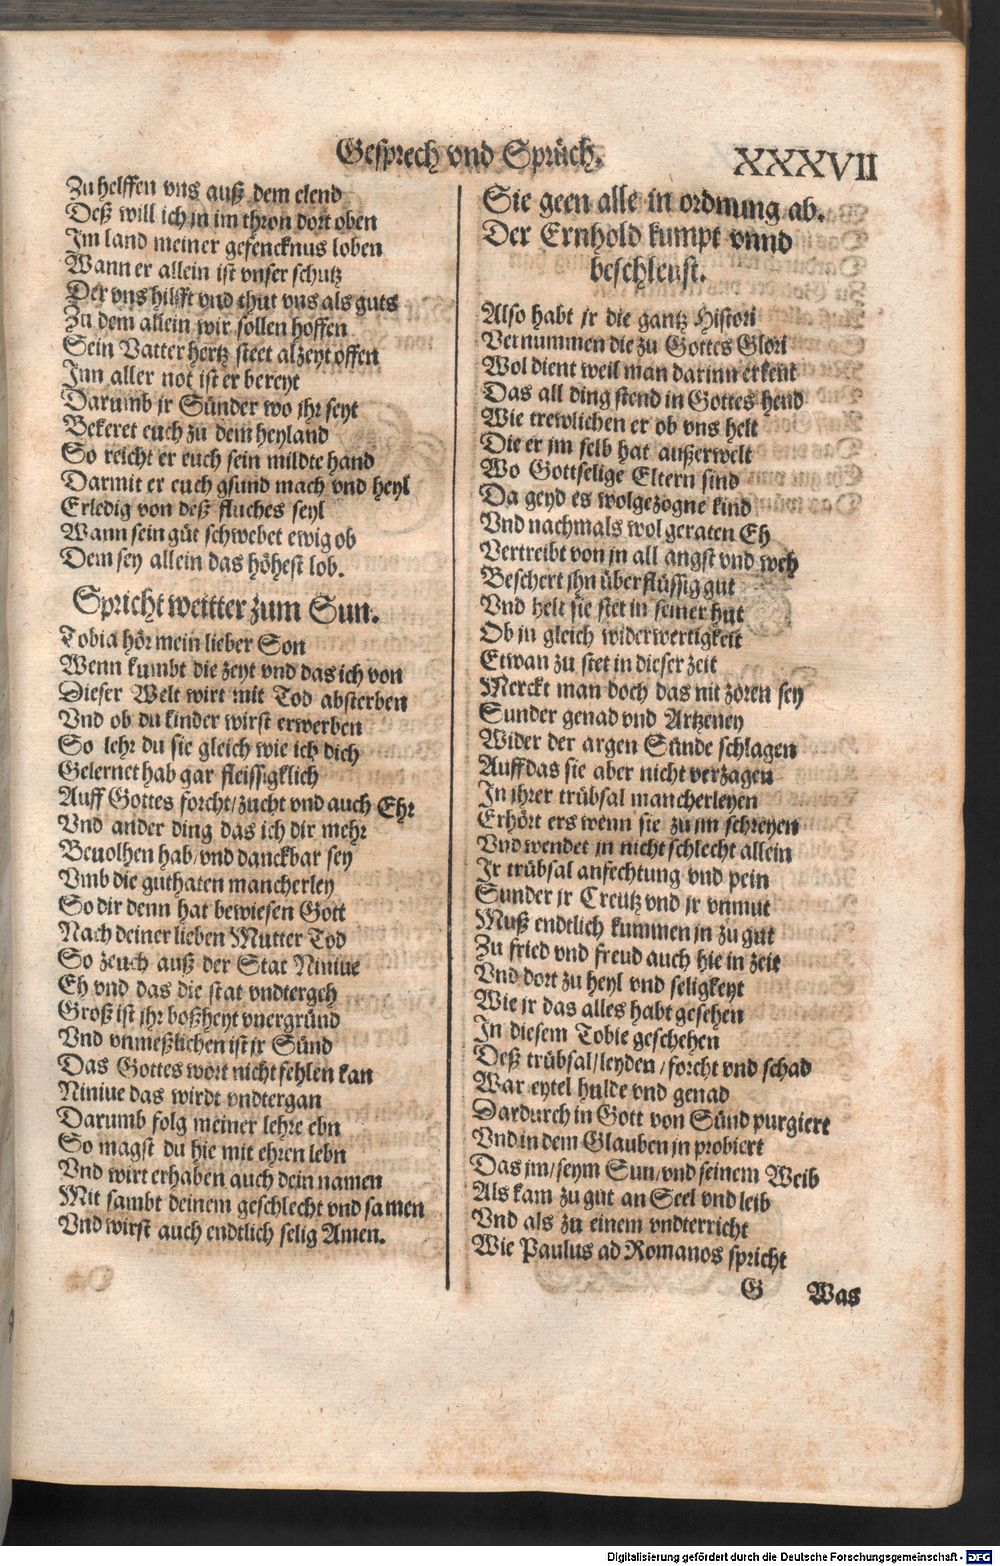 Gesprech vnd Sprüch. XXXVII
Zu helffen vns auß dem elend
Deß will ich in im thron dort oben
Im land meiner gefencknus loben
Wann er allein ist vnser schutz
Der vns hilfft vnd thut vns als guts
Zu dem allein wir sollen hoffen
Sein Vatter hertz steet alzeyt offen
Inn aller not ist er bereyt
Darumb jr Sünder wo jhr seyt
Bekeret euch zu dem heyland
So reicht er euch sein mildte hand
Darmit er euch gsund mach vnd heyl
Erledig von deß fluches seyl
Wann sein güt schwebet ewig ob
Dem sey allein das höhest lob.
Spricht weitter zum Sun.
Tobia hör mein lieber Son
Wenn kumbt die zeyt vnd das ich von
Dieser Welt wirt mit Tod absterben
Vnd ob du kinder wirst erwerben
So lehr du sie gleich wie ich dich
Gelernet hab gar fleissigklich
Auff Gottes forcht/zucht vnd auch Ehr
Vnd ander ding das ich dir mehr
Beuolhen hab/vnd danckbar sey
Vmb die guthaten mancherley
So dir denn hat bewiesen Gott
Nach deiner lieben Mutter Tod
So zeuch auß der Stat Niniue
Eh vnd das die stat vndtergeh
Groß ist jhr boßheyt vnergründ
Vnd vnmeßlichen ist jr Sünd
Das Gottes wort nicht fehlen kan
Niniue das wirdt vndtergan
Darumb folg meiner lehre ebn
So magst du hie mit ehren lebn
Vnd wirt erhaben auch dein namen
Mit sambt deinem geschlecht vnd samen
Vnd wirst auch endtlich selig Amen.
Sie geen alle in ordnung ab.
Der Ernhold kumpt vnnd
beschleust.
Also habt jr die gantz Histori
Vernummen die zu Gottes Glori
Wol dient weil man darinn erkent
Das all ding stend in Gottes hend
Wie trewlichen er ob vns helt
Die er jm selb hat außerwelt
Wo Gottselige Eltern sind
Da geyd es wolgezogne kind
Vnd nachmals wol geraten Eh
Vertreibt von jn all angst vnd weh
Beschert jhn überflüssig gut
Vnd helt sie stet in seiner hut
Ob jn gleich widerwertigkeit
Etwan zu stet in dieser zeit
Merckt man doch das nit zoren sey
Sunder genad vnd Artzeney
Wider der argen Sünde schlagen
Auff das sie aber nicht verzagen
In jhrer trübsal mancherleyen
Erhört ers wenn sie zu jm schreyen
Vnd wendet jn nicht schlecht allein
Jr trübsal anfechtung vnd pein
Sunder jr Creutz vnd jr vnmut
Muß endtlich kummen jn zu gut
Zu fried vnd freud auch hie in zeit
Vnd dort zu heyl vnd seligkeyt
Wie jr das alles habt gesehen
In diesem Tobie geschehen
Deß trübsal/leyden/forcht vnd schad
War eytel hulde vnd genad
Dardurch in Gott von Sünd purgiert
Vnd in dem Glauben jn probiert
Das jm/seym Sun/vnd seinem Weib
Als kam zu gut an Seel vnd leib
Vnd als zu einem vndterricht
Wie Paulus ad Romanos spricht
G Was
Digitalisierung gefördert durch die Deutsche Forschungsgemeinschaft - DFG